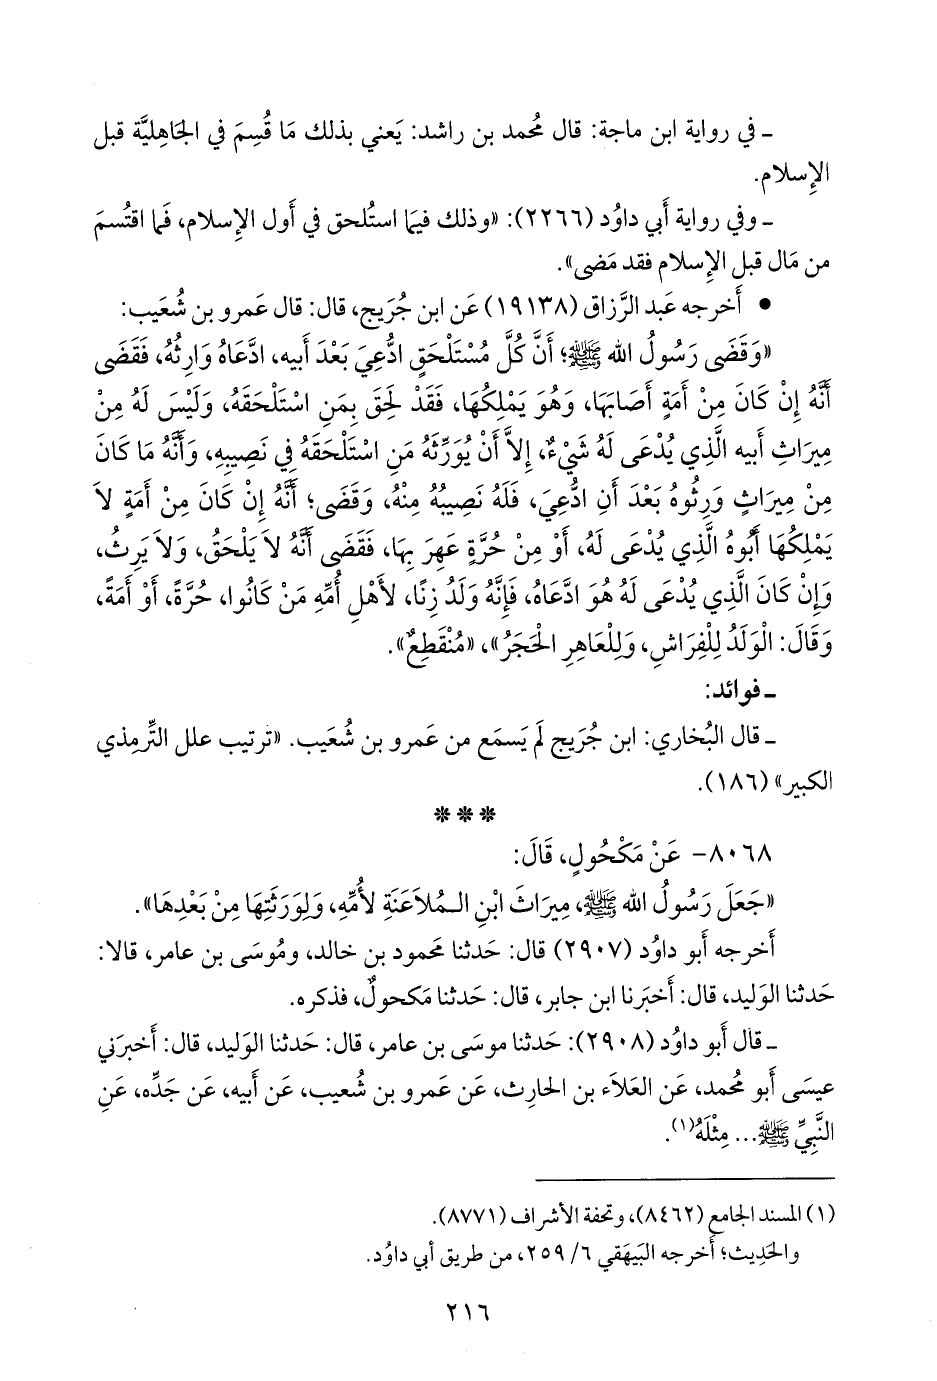 ـ في رواية ابن ماجة: قال مُحمد بن راشد: يَعني بذلك مَا قُسِمَ في الجَاهليَّة قبل
الإِسلام.
ـ وفي رواية أَبي داوُد (٢٢٦٦): «وذلك فيمَا استُلحق في أَول الإِسلام، فَمَا اقتُسمَ
من مَال قبل الإِسلام فقد مَضى».
• أَخرجه عَبد الرَّزاق (١٩١٣٨) عَن ابن جُرَيج، قال: قال عَمرو بن شُعَيب:
«وَقَضَى رَسُولُ الله ﷺ؛ أَنَّ كُلَّ مُسْتَلْحَقٍ ادُّعِيَ بَعْدَ أَبيه، ادَّعَاهُ وَارِثُهُ، فَقَضَى
أَنَّهُ إِنْ كَانَ مِنْ أَمَةٍ أَصَابَهَا، وَهُوَ يَمْلِكُهَا، فَقَدْ لَحِقَ بِمَنِ اسْتَلْحَقَهُ، وَلَيْسَ لَهُ مِنْ
مِيرَاثِ أَبيه الَّذِي يُدْعَى لَهُ شَيْءٌ، إِلاَّ أَنْ يُوَرِّثَهُ مَنِ اسْتَلْحَقَهُ فِي نَصِيبِهِ، وَأَنَّهُ مَا كَانَ
مِنْ مِيرَاثٍ وَرِثُوهُ بَعْدَ أَنِ ادُّعِيَ، فَلَهُ نَصِيبُهُ مِنْهُ، وَقَضَى؛ أَنَّهُ إِنْ كَانَ مِنْ أَمَةٍ لاَ
يَمْلِكُهَا أَبُوهُ الَّذِي يُدْعَى لَهُ، أَوْ مِنْ حُرَّةٍ عَهِرَ بِهَا، فَقَضَى أَنَّهُ لاَ يَلْحَقُ، وَلاَ يَرِثُ،
وَإِنْ كَانَ الَّذِي يُدْعَى لَهُ هُوَ ادَّعَاهُ، فَإِنَّهُ وَلَدُ زِنًا، لأَهْلِ أُمِّهِ مَنْ كَانُوا، حُرَّةً، أَوْ أَمَةً،
وَقَالَ: الْوَلَدُ لِلْفِرَاشِ، وَلِلْعَاهِرِ الْحَجَرُ»، «مُنْقَطِعٌ».
ـ فوائد:
ـ قال البُخاري: ابن جُرَيج لَم يَسمَع من عَمرو بن شُعَيب. «ترتيب علل التِّرمِذي
الكبير» (١٨٦).
* * *
٨٠٦٨- عَنْ مَكْحُولٍ، قَالَ:
«جَعَلَ رَسُولُ الله ﷺ، مِيرَاثَ ابْنِ الْـمُلاَعَنَةِ لأُمِّهِ، وَلِوَرَثَتِهَا مِنْ بَعْدِهَا».
أَخرجه أَبو داوُد (٢٩٠٧) قال: حَدثنا مَحمود بن خالد، ومُوسَى بن عامر، قالا:
حَدثنا الوَليد، قال: أَخبَرنا ابن جابر، قال: حَدثنا مَكحولٌ، فذكره.
ـ قال أَبو داوُد (٢٩٠٨): حَدثنا موسَى بن عامر، قال: حَدثنا الوَليد، قال: أَخبرَني
عيسَى أَبو مُحمد، عَن العَلاَء بن الحارِث، عَن عَمرو بن شُعيب، عَن أَبيه، عَن جَدِّه، عَنِ
النَّبِيِّ ﷺ... مِثْلَهُ(١).
(١) المسند الجامع (٨٤٦٢)، وتحفة الأشراف (٨٧٧١).
والحَدِيث؛ أَخرجه البَيهَقي ٦/ ٢٥٩، من طريق أَبي داوُد.
٢١٦